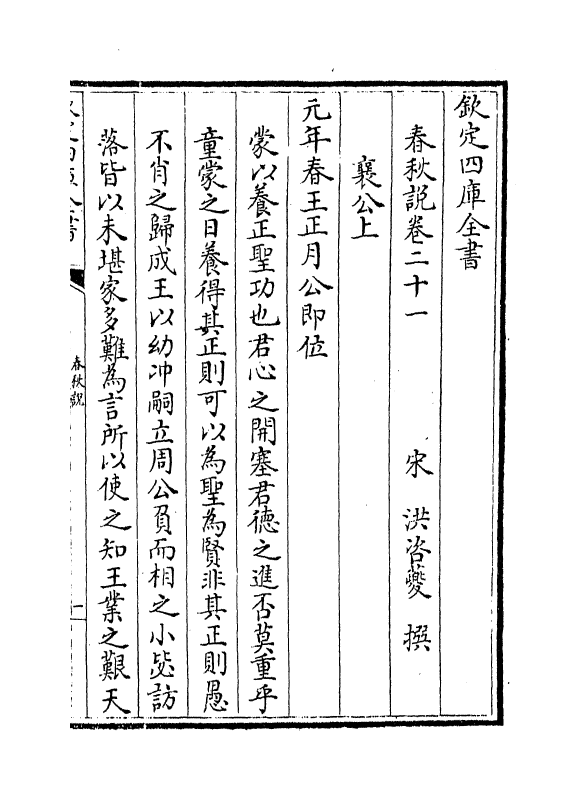 欽定四庫全書
春秋說卷二十一　宋　洪咨夔　撰
襄公上
元年春王正月公即位
蒙以養正聖功也君心之開塞君德之進否莫重乎
童蒙之日養得其正則可以為聖為賢非其正則愚
不肖之歸成王以幼冲嗣立周公負而相之小毖訪
落皆以未堪家多難為言所以使之知王業之艱天
春秋說
一